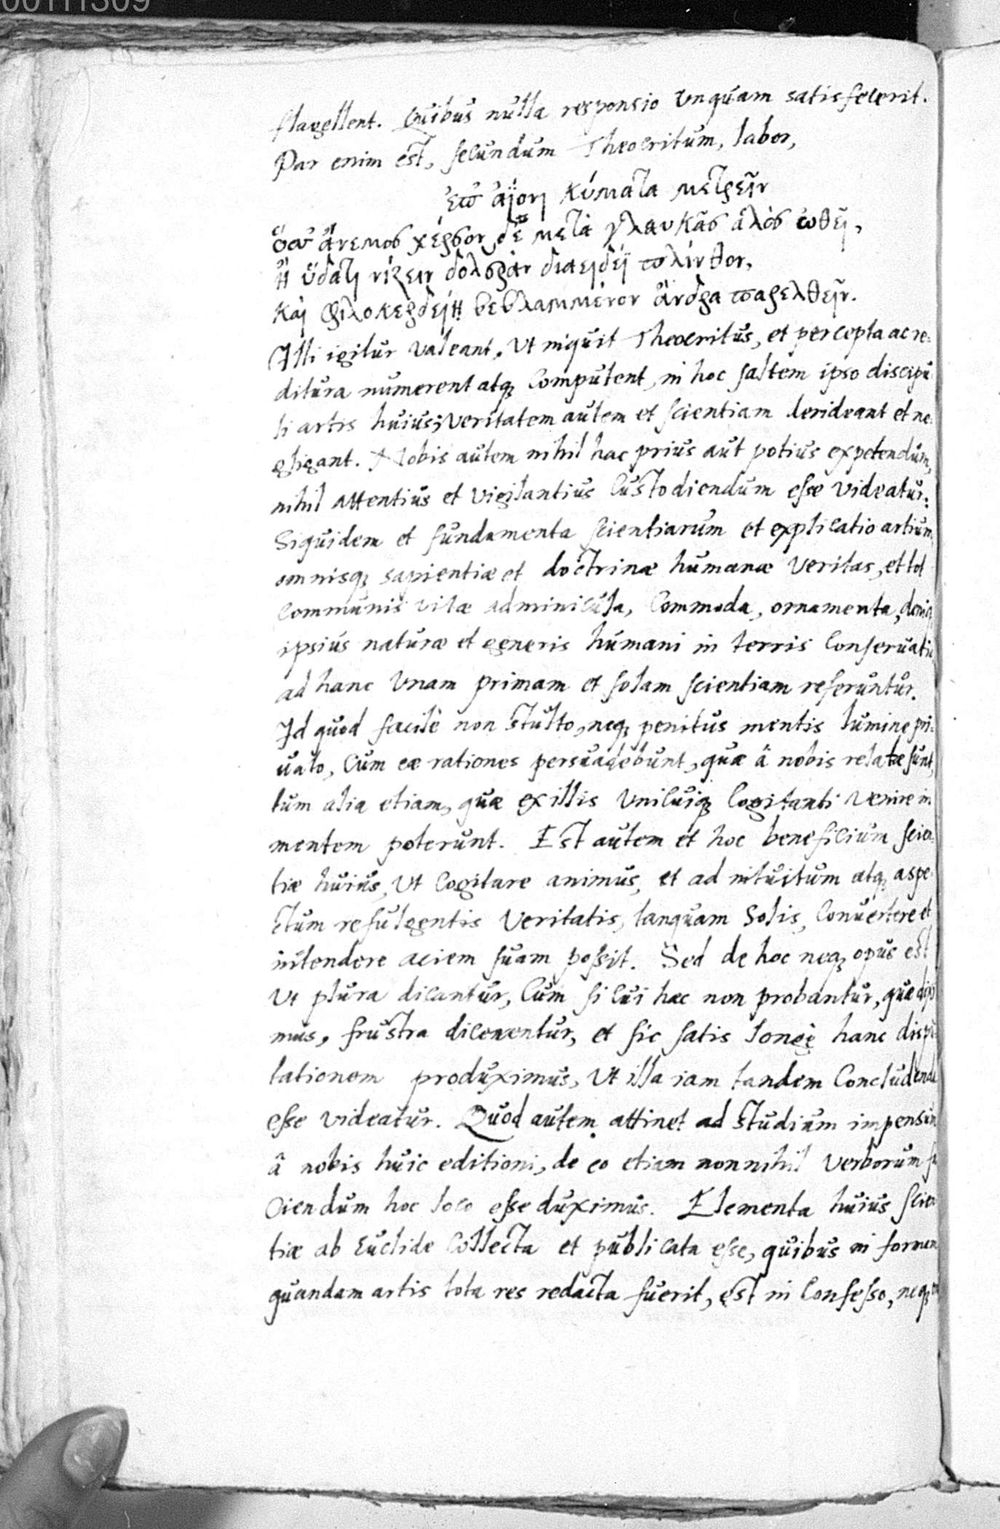 00111309
flagellent. Quibus nulla responsio unquam satisfecerit.
Par enim est, secundum Theocritum, labor,
ἐπ' ἀϊόνι κύματα μετρεῖν
ὅσσ' ἄνεμος χέρσον δὲ μετὰ γλαυκᾶς ἁλὸς ὠθεῖ,
ἢ ὕδατι νίζειν θολερὰν διαειδέϊ πλίνθον,
καὶ φιλοκερδείῃ βεβλαμμένον ἄνδρα παρελθεῖν.
Illi igitur valeant, ut inquit Theocritus, et percepta ac re-
ditura numerent atq; computent, in hoc saltem ipso discipu
li artis huius; veritatem autem et scientiam derideant et ne-
gligant. Nobis autem nihil hac prius aut potius expetendum,
nihil attentius et vigilantius custodiendum esse videatur.
Siquidem et fundamenta scientiarum et explicatio artium,
omnisq; sapientiæ et doctrinæ humanæ veritas, et tot
communis vitæ adminicula, commoda, ornamenta, deniq;
ipsius naturæ et generis humani in terris conservatio
ad hanc unam primam et solam scientiam referuntur.
Id quod facilè non stulto, neq; penitus mentis lumine pri-
vato, cum eæ rationes persuadebunt, quæ â nobis relatæ sunt,
tum aliæ etiam, quæ ex illis unicuiq; cogitanti venire in
mentem poterunt. Est autem et hoc beneficium scien-
tiæ huius, ut cogitare animus, et ad intuitum atq; aspe-
ctum refulgentis veritatis, tanquam Solis, convertere et
intendere aciem suam possit. Sed de hoc neq; opus est
ut plura dicantur, cum si cui hæc non probantur, quæ dixi
mus, frustra dicerentur, et sic satis longè hanc dispu
tationem produximus, ut illa iam tandem concludenda
esse videatur. Quod autem attinet ad studium impensum
â nobis huic editioni, de eo etiam nonnihil verborum fa
ciendum hoc loco esse duximus. Elementa huius scien
tiæ ab Euclide collecta et publicata esse, quibus in formam
quandam artis tota res redacta fuerit, est in confesso, neq;